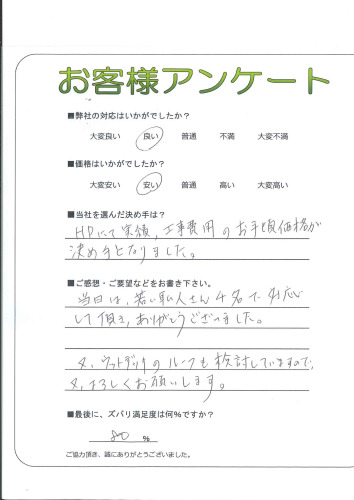 お客様アンケート
■弊社の対応はいかがでしたか?
大変良い 良い 普通 不満 大変不満
■価格はいかがでしたか?
大変安い 安い 普通 高い 大変高い
■当社を選んだ決め手は?
HPにて実績,工事費用のお手頃価格が
決め手となりました。
■ご感想・ご要望などをお書き下さい。
当日は、若い職人さん4名で対応
して頂き,ありがとうございました。
又,ウッドデッキのルーフも検討していますので,
又,よろしくお願いします。
■最後に、ズバリ満足度は何%ですか?
80 %
ご協力頂き、誠にありがとうございました。